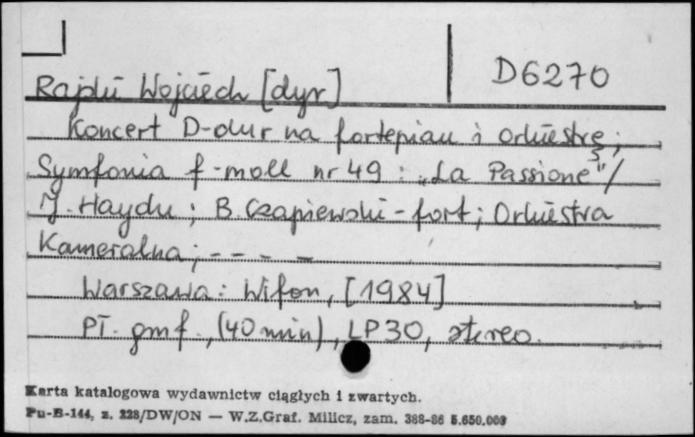 D6270
Rajski Wojciech [dyr]
Koncert D-dur na fortepian i orkiestrę;
Symfonia f-moll nr 49: „La Passione"/
J. Haydn; B. Czapiewski - fort; Orkiestra
Kameralna; - - - -
Warszawa: Wifon, [1984]
Pł. gmf., (40 min), LP30, stereo.
Karta katalogowa wydawnictw ciągłych i zwartych.
Pu-B-144, z. 228/DW/ON — W.Z.Graf. Milicz, zam. 388-86 5.650.000